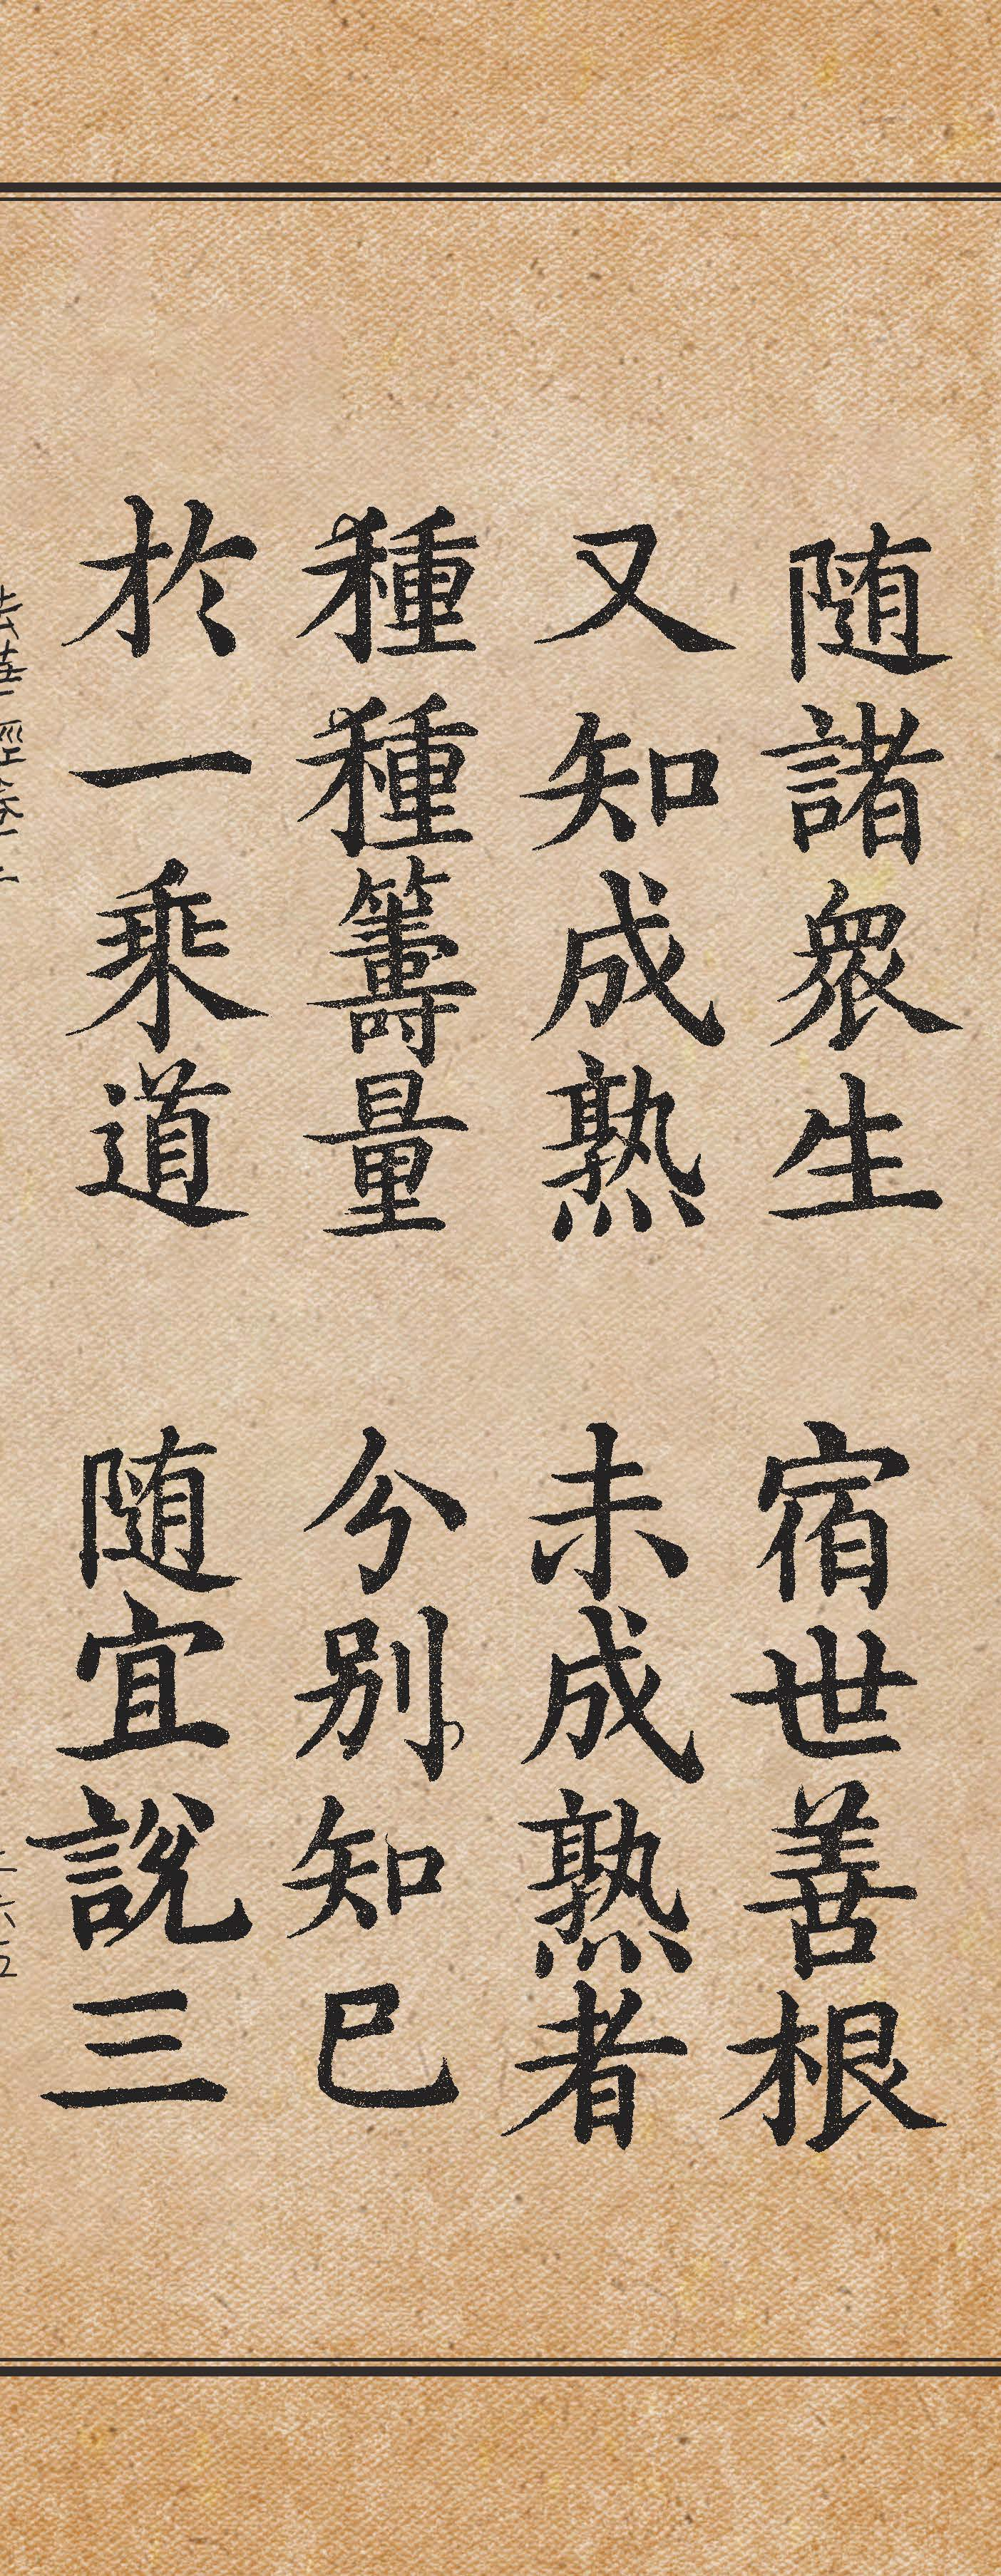 随諸衆生 宿世善根
又知成熟 未成熟者
種種籌量 分別知已
於一乘道 随宜說三